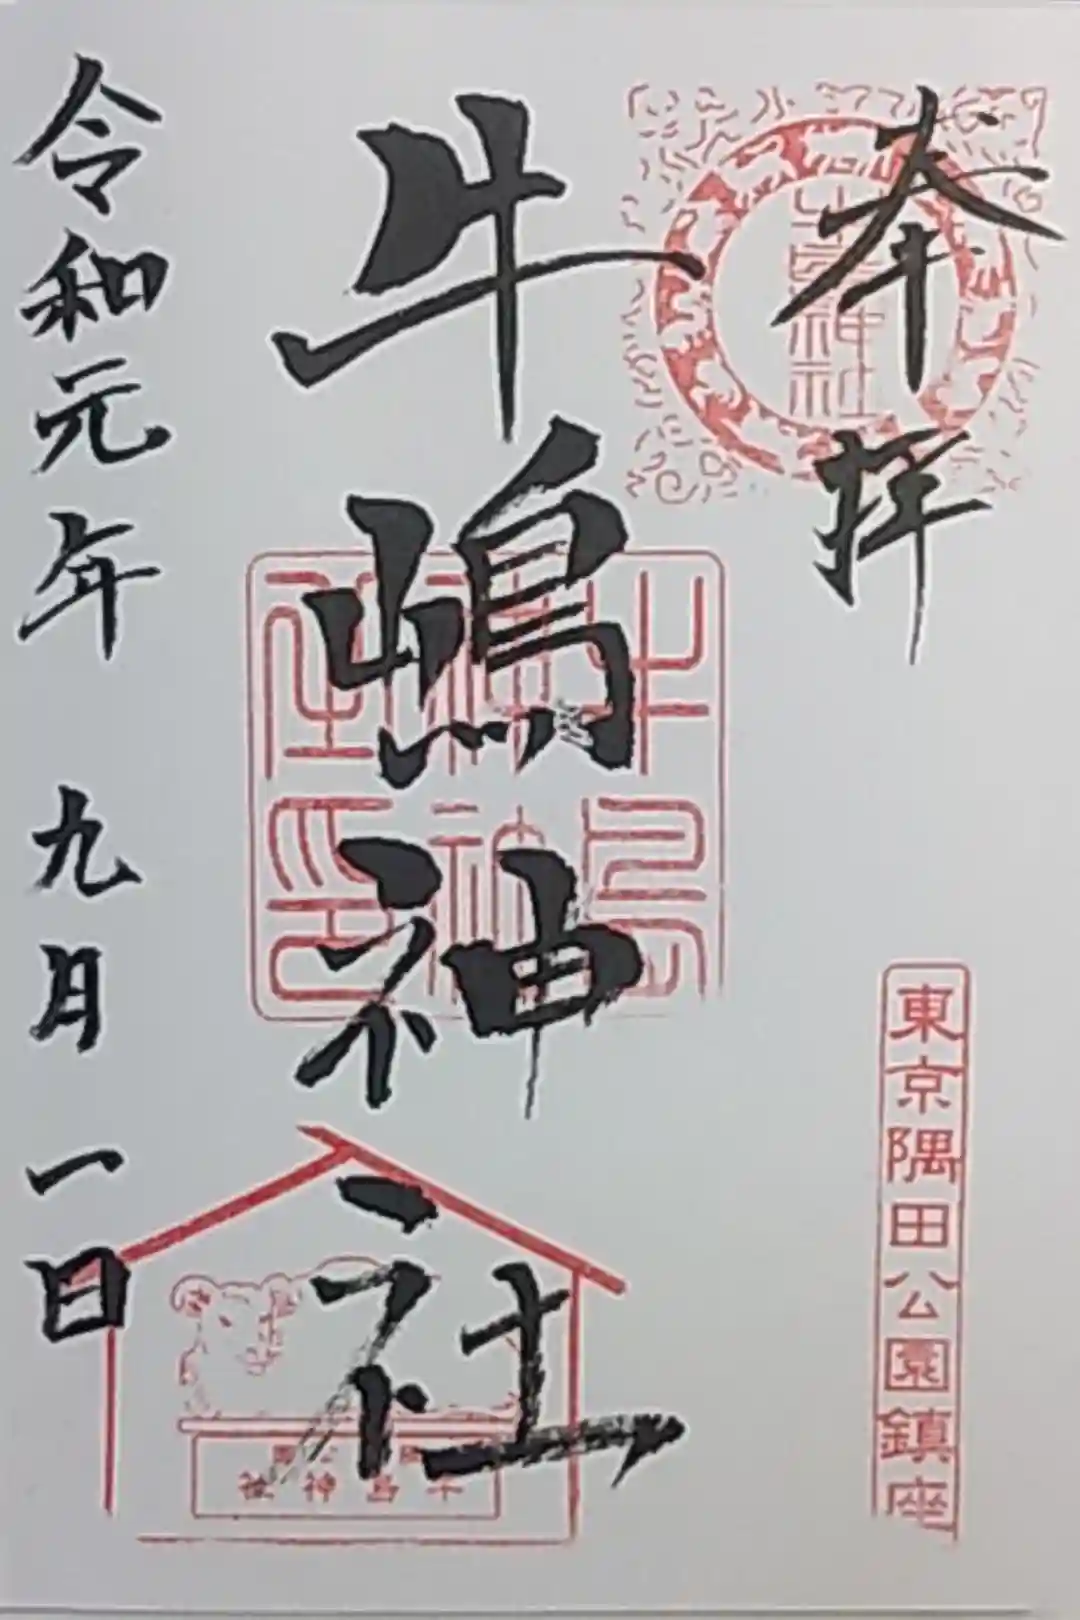 奉拝
牛嶋神社
令和元年 九月一日
東京隅田公園鎮座
牛島神社